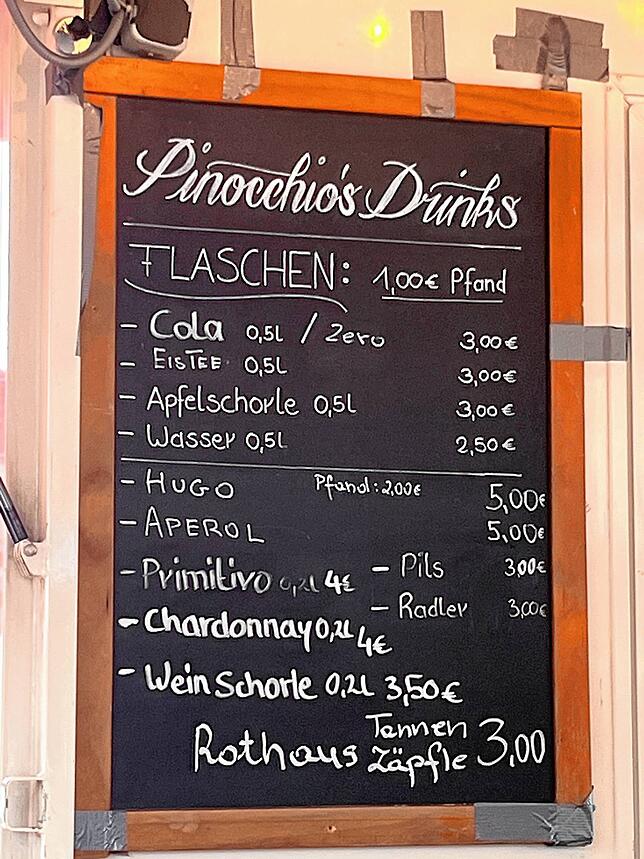 Pinocchio's Drinks
FLASCHEN: 1,00€ Pfand
- Cola 0,5l / Zero 3,00€
- EISTEE 0,5l 3,00€
- Apfelschorle 0,5l 3,00€
- Wasser 0,5l 2,50€
- HUGO Pfand: 2,00€ 5,00€
- APEROL 5,00€
- Primitivo 0,2l 4€ - Pils 3,00€
- Radler 3,00€
- Chardonnay 0,2l 4€
- Wein Schorle 0,2l 3,50€
Rothaus Tannen Zäpfle 3,00